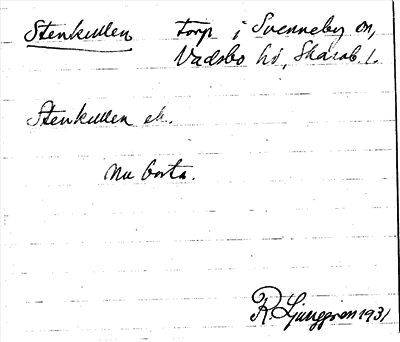 Stenkullen torp i Svenneby sn,
Vadsbo hd, Skarab. l.
Stenkullen ek.
Nu borta.
R. Ljunggren 1931